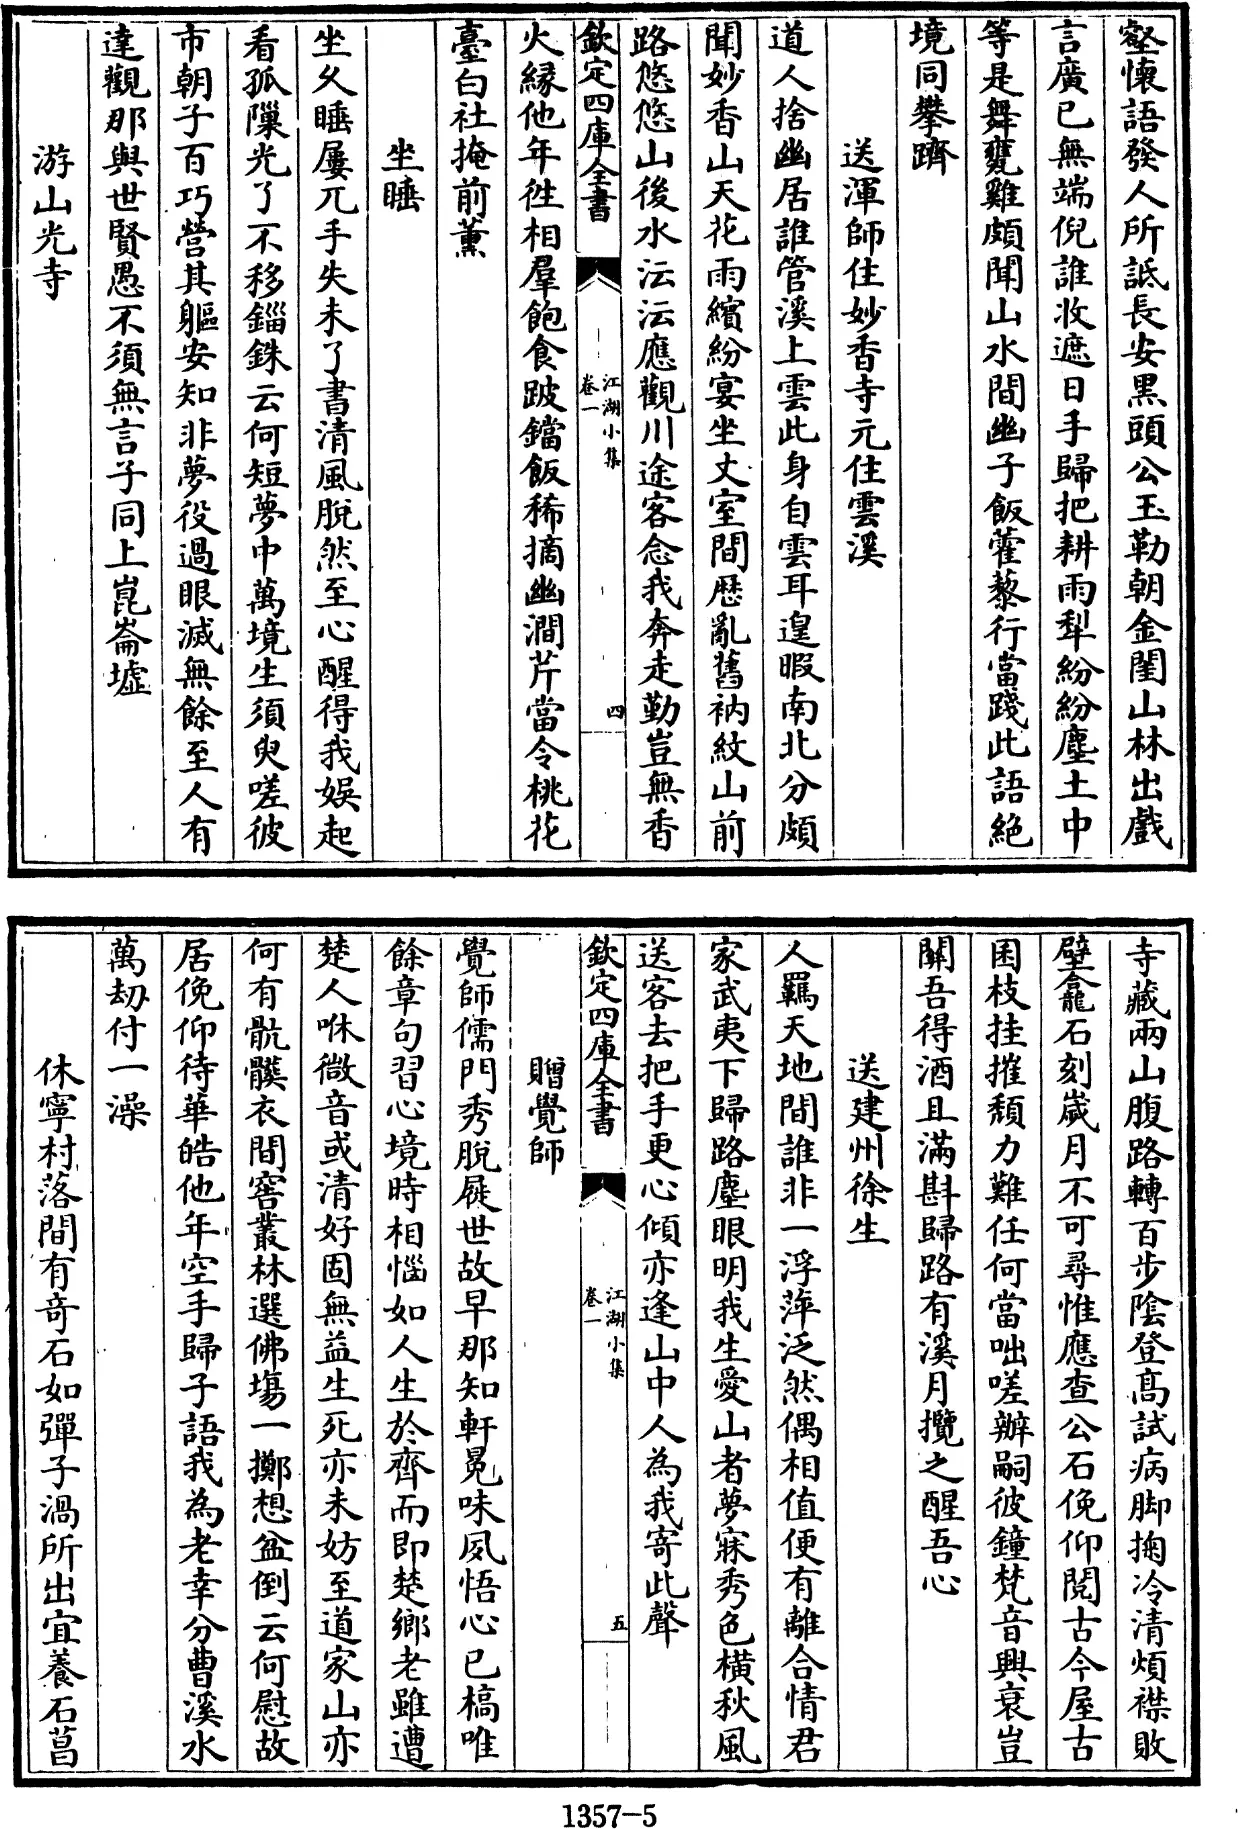 壑懐語發人所詆長安黒頭公玉勒朝金閨山林出戲
言廣已無端倪誰收遮日手歸把耕雨犁紛紛塵土中
等是舞甕雞頗聞山水間幽子飯藿藜行當踐此語絶
境同攀躋
送渾師住妙香寺元住雲溪
道人捨幽居誰管溪上雲此身自雲耳遑暇南北分頗
聞妙香山天花雨繽紛宴坐丈室間厯亂舊衲紋山前
路悠悠山後水沄沄應觀川途客念我奔走勤豈無香
欽定四庫全書
江湖小集
卷一
四
火縁他年徃相羣飽食跛鐺飯稀摘幽澗芹當令桃花
臺白社掩前薫
坐睡
坐久睡屢兀手失未了書清風脫然至心醒得我娛起
看孤隟光了不移錙銖云何短夢中萬境生須臾嗟彼
市朝子百巧營其軀安知非夢役過眼滅無餘至人有
達觀那與世賢愚不須無言子同上崑崙墟
游山光寺
寺藏兩山腹路轉百步陰登髙試病脚掬冷清煩襟敗
壁龕石刻嵗月不可尋惟應查公石俛仰閲古今屋古
困枝拄摧頽力難任何當咄嗟辦嗣彼鐘梵音興衰豈
闗吾得酒且滿斟歸路有溪月攬之醒吾心
送建州徐生
人羈天地間誰非一浮萍泛然偶相值便有離合情君
家武夷下歸路塵眼明我生愛山者夢寐秀色横秋風
送客去把手更心傾亦逢山中人為我寄此聲
欽定四庫全書
江湖小集
卷一
五
贈覺師
覺師儒門秀脫屣世故早那知軒冕味夙悟心已槁唯
餘章句習心境時相惱如人生於齊而即楚鄉老雖遭
楚人咻微音或清好固無益生死亦未妨至道家山亦
何有骯髒衣間窖叢林選佛塲一擲想盆倒云何慰故
居俛仰待華皓他年空手歸子語我為老幸分曹溪水
萬劫付一澡
休寧村落間有竒石如彈子渦所出宜養石菖
1357-5